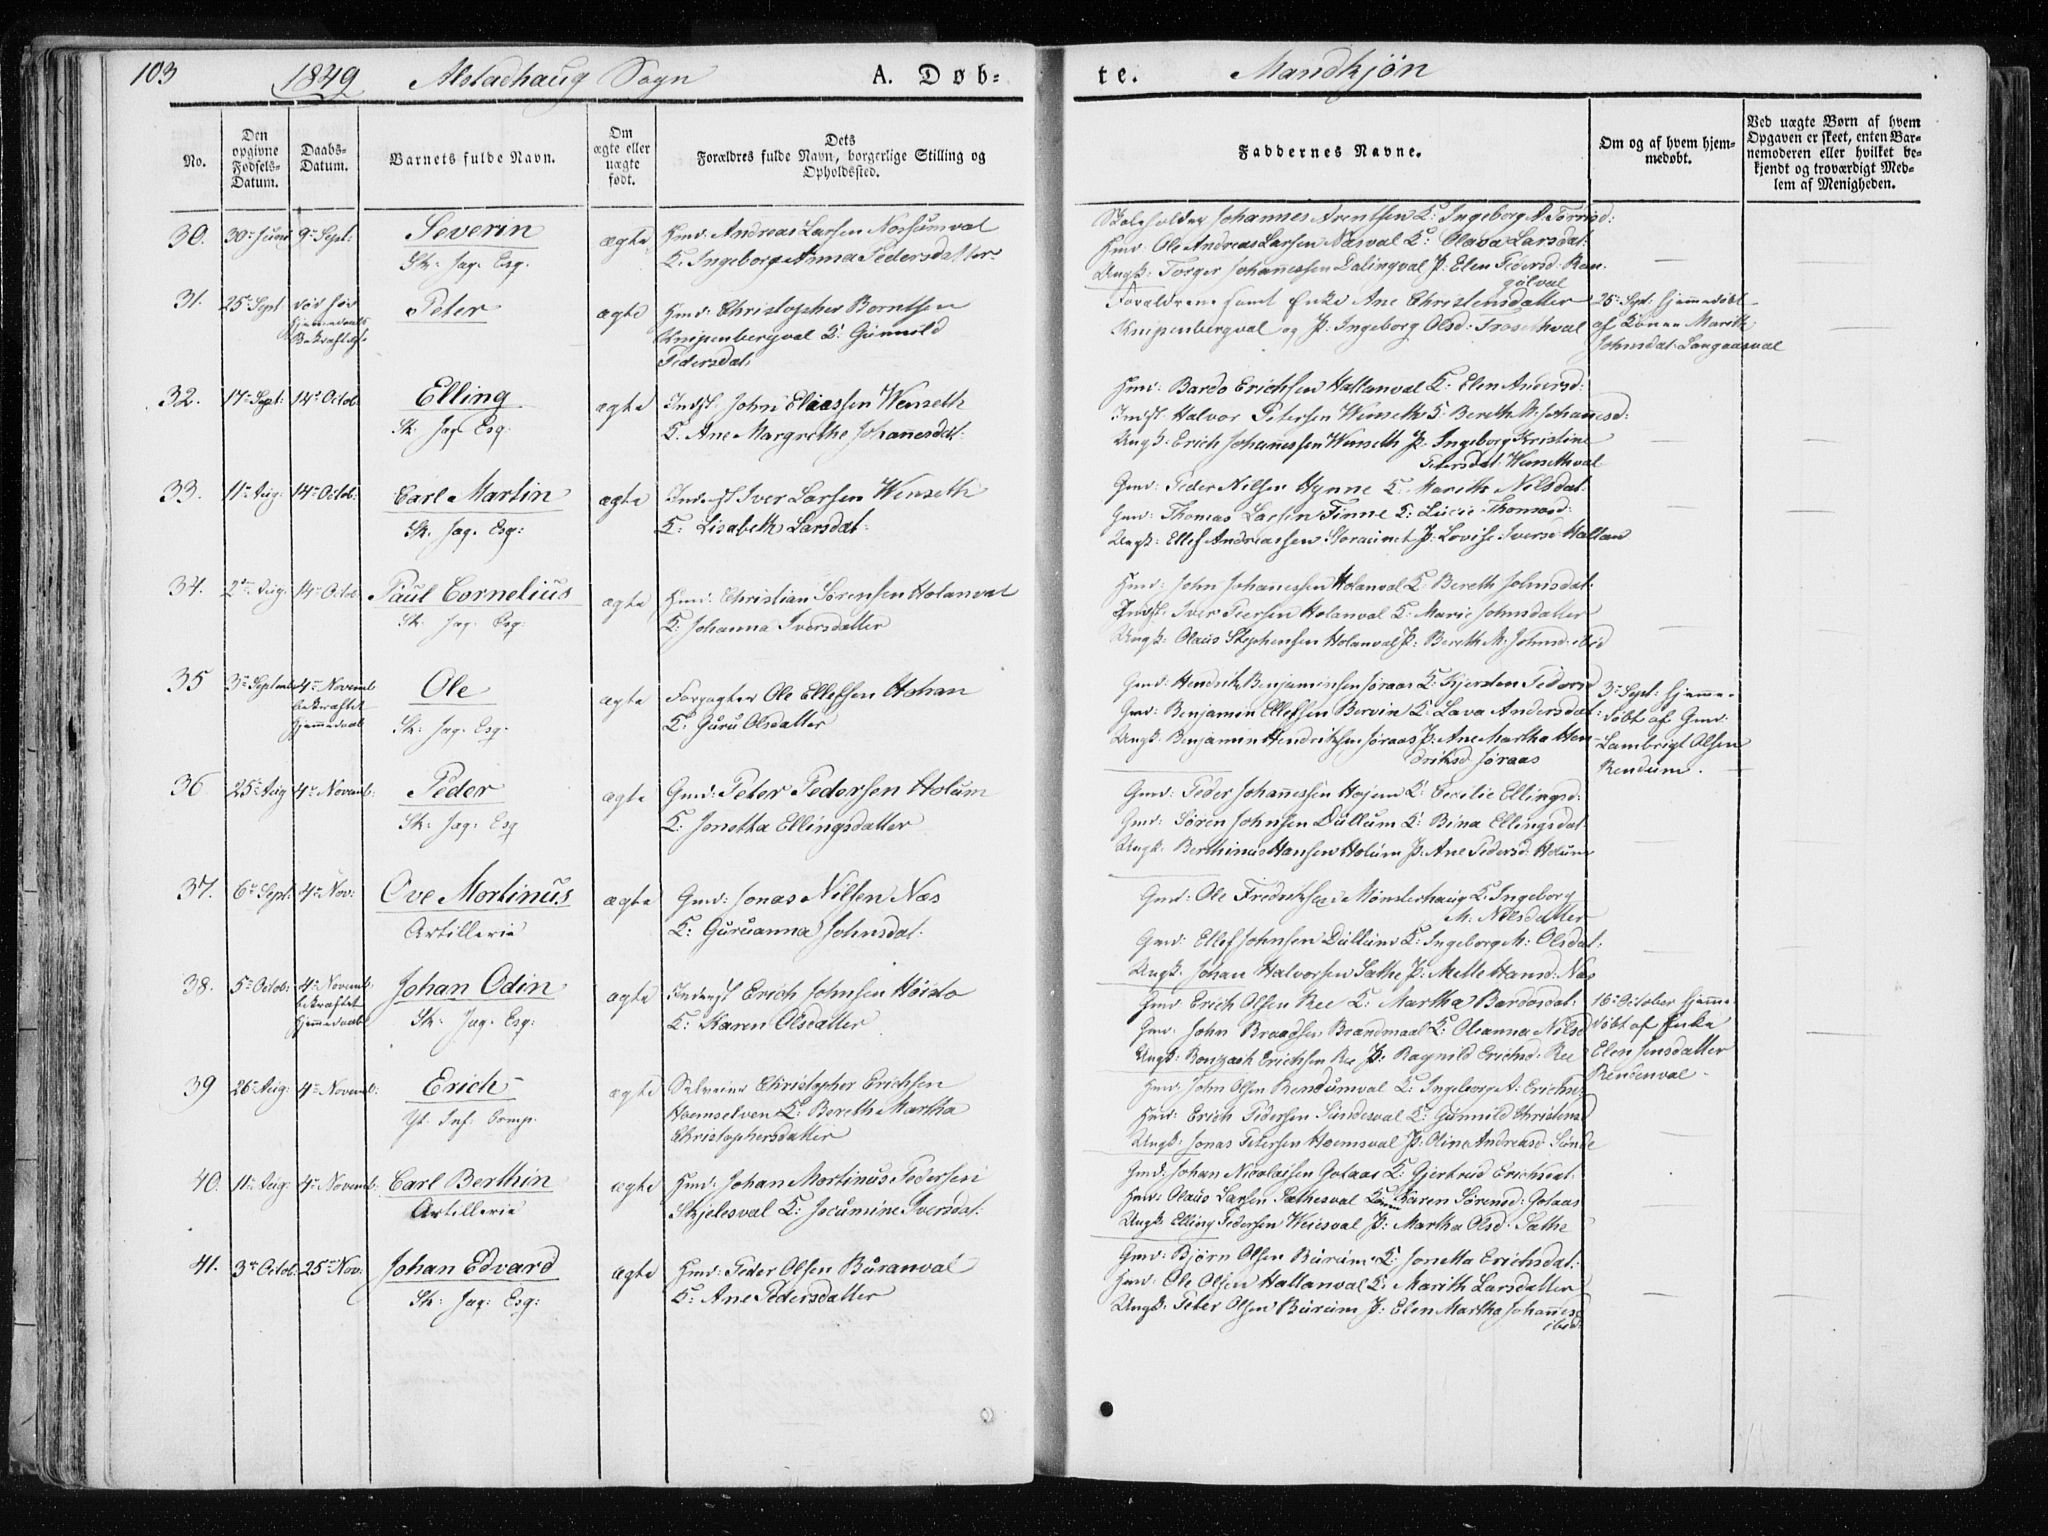 103 1849 Alstadhaug Sogn A. Døb- te. Mandkjøn
No.
Den opgivne Fødsels-Datum.
Daabs-Datum.
Barnets fulde Navn.
Om ægte eller uægte født.
Dets Forældres fulde Navn, borgerlige Stilling og Opholdssted.
Faddernes Navne.
Om og af hvem hjemmedøbt.
Ved uægte Børn af hvem Opgaven er skeet, enten Barnemoderen eller hvilket bekjendt og troværdigt Medlem af Menigheden.
30. 30te Juni 9de Sept: Severin ægte Hmd: Andreas Larsen
K. Ingeborg Anna Pedersdatter
Sk: Jag. Esq.
Skoleholder Johannes Arentsen K: Ingeborg A.
Hmd: Ole Andreas Larsen Næsval K: Olava Larsdat:
Ungk: Torger Johannessen Dalingval P: Elen Pedersd:
31. 25de Sept. Peter ægte Hmd: Christopher Berntsen
Knipenbergval K: Gunnild
Pedersdat:
Forældrene samt Enke Ane Christensdatter
Knipenbergval og P. Ingeborg Olsd:
25de Sept. hjemmedøbt
af Konen Marith
Johnsdat:
32. 17de Sept: 14de Octob: Elling ægte Indst. John Eliassen Wenseth
K. Ane Margrethe Johannesdat:
Sk: Jag. Esq.
Hmd: Bardo Erichsen Hallanval K: Elen Andersd:
Indst. Halvor Petersen Wenseth K. Bereth M. Johannesd:
Ungk: Erich Johannessen Wenseth P. Ingeborg Kristine
Petersdat: Wensethval
33. 11te Aug: 14de Octob: Carl Martin ægte Inderst Iver Larsen Wenseth
K: Lisabeth Larsdat:
Sk. Jag. Esq:
Gmd: Peder Nilsen Hynne K. Marith Nilsdat:
Gmd: Thomas Larsen Finne K: Lucie Thomasd:
Ungk: Ellef Andreassen P: Lovise Iversd: Hallan
34. 2den Aug. 14de Octob: Paul Cornelius ægte Hmd: Christian Sørensen Holanval
K: Johanna Iversdatter
Sk. Jag. Esq:
Hmd: John Johannessen Holanval K: Bereth Johnsdat:
Indst. Iver Holanval K: Marie Johnsdatter
Ungk: Olaus Stephensen Holanval P: Bereth M. Johnsd: ibid
35 3de Septemb: 4de Novemb: bekræftet Hjemmedaab Ole ægte Forpagter Ole Ellefsen Hojan
K. Guru Olsdatter
Sk: Jag. Esq.
Gmd: Hendrik Benjaminsen Joraas K: Kjersten Pedersd
Gmd: Benjamin Ellefsen Bervin K: Lava Andersdat:
Ungk. Benjamin Hendriksen Joraas P: Ane Martha Hen-
driksd Joraas
3de Sept: hjemme-
døbt af Gmd:
Lambrigt Olsen
Rendum.
36 25de Aug 4de Novemb: Peder ægte Gmd: Peter Pedersen Holum
K: Jonetta Ellingsdatter
Sk: Jag: Esq
Gmd: Peder Johannessen Hojem K: Cecilie Ellingsd:
Gmd: Søren Johnsen Dullum K: Bina Ellingsdat:
Ungk. Berthinus Hansen Holum P: Ane Pedersd: Holum
37. 6te Sept: 4de Nov: Ove Mortinus ægte Gmd: Jonas Nilsen Næs
K: Guruanna Johnsdat:
Artillerie
Gmd: Ole Fredriksen Mønsterhaug K: Ingeborg
M: Nilsdatter
Gmd: Ellef Johnsen Dullum K: Ingeborg M: Olsdat:
Ungk. Johan Halvorsen Sathe P: Melle Hansd: Næs
38. 5te Octob: 4de Novemb: bekræftet Hjemmedaab Johan Odin ægte Inderst Erich Johnsen Høislo
K: Karen Olsdatter
Sk: Jag. Esq:
Gmd: Erich Olsen Ree K: Martha Bardosdat:
Gmd: John Braadsen Brandmaal K: Oleanna Nilsd
Ungk: Erichsen Ree P: Ragnild Erichsd: Ree
16de October hjemme-
døbt af Enke
Elen Jensdatter
Rendenval
39 26de Aug: 4de Novemb: Erich ægte Selveier Christopher Erichsen
Hoemselven K: Bereth Martha
Christophersdatter
Yt: Inf: Comp.
Hmd: John Olsen Rendumval K: Ingeborg A: Erichsd
Hmd: Erich Pedersen Sundesval K: Gunnild Christensd
Ungk: Jonas Petersen Hoemsval P: Olina Andreasd Sunde
40. 11te Aug: 4de Novemb: Carl Berthin ægte Hmd: Johan Mortinus Pedersen
Skjelesval K: Jocumine Iversdat:
Artillerie
Gmd: Johan Nicolaisen Gotaas K: Gjertrud Erichsdat:
Hmd: Olaus Larsen Sathesval Karen Sørensd: Gotaas
Ungk: Elling Pedersen Weiesval P: Martha Olsd. Sathe
41. 3de Octob: 25de Nov: Johan Edvard ægte Hmd: Peder Olsen Buranval
K: Ane Pedersdatter
Sk: Jag: Esq:
Gmd: Bjørn Olsen Burum K: Jonetta Erichsdat:
Hmd: Ole Olsen Hallanval K: Marith Larsdatter
Ungk. Peter Olsen Burum P: Elen Martha Johannesd
ibid: